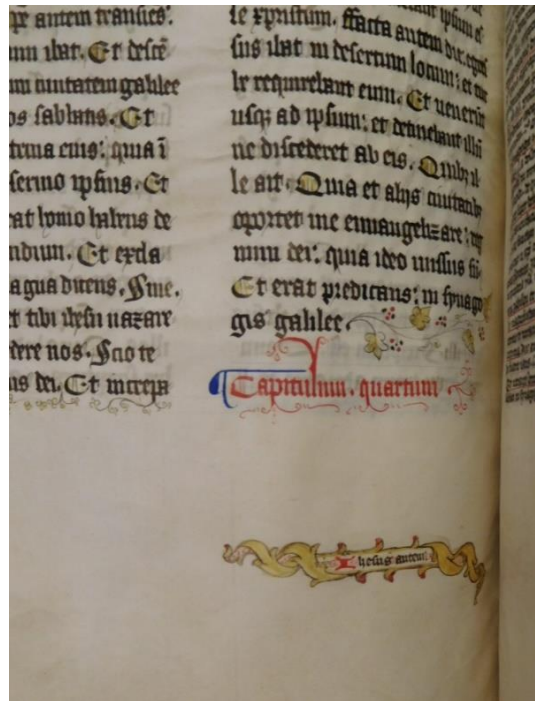 pe autem transies.
ibat. Et descē
ciuitatem galilee
sabbatis. Et
trina eius: quia ī
sermo ipsius. Et
rat homo habens de
ndium. Et excla
agna dicens. Sine.
t tibi ihesu nazare
dere nos. Scio te
us dei. Et increpa
se xpristum. ffacta autem die
sus ibat in desertum locum: et
be requirebant eum. Et uenerūt
usqʒ ad ipsum: et detinebant illū
ne discederet ab eis. Quibʒ il
le ait. Quia et alijs ciuitatibʒ
oportet me euuangelizare: reg
num dei: quia ideo missus sū.
Et erat predicans: in synago
gis galilee.
Capitulum. quartum
Ihesus autem